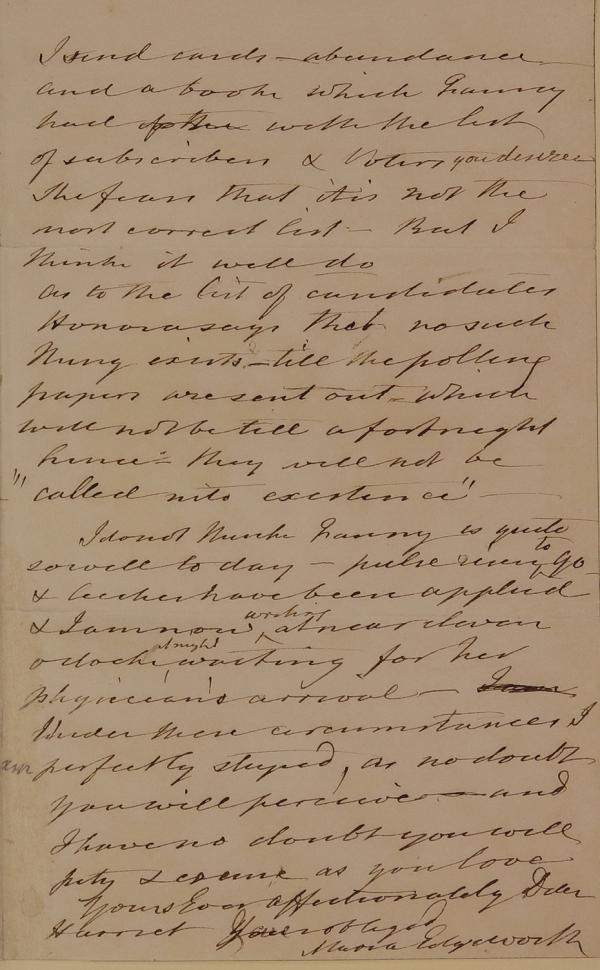 I send cards - abundance -
and a book which Fanny
had with the list
of subscribers & Voters you desired
She fears that it is not the
most correct list - But I
think it will do
As to the list of candidates
Honora says that no such
thing exists - till the polling
papers are sent out - which
will not be till a fortnight
hence - they will not be
"called into existence" -
I do not think Fanny is quite
so well to day - pulse risen to 90
& leeches have been applied
& I am now writing at near eleven
o clock at night waiting for her
physician's arrival -
Under these circumstances I
am perfectly stupid, as no doubt
you will perceive - and
I have no doubt you will
pity & excuse as you love
Yours Ever affectionately Dear
Harriet Your obliged
Maria Edgeworth